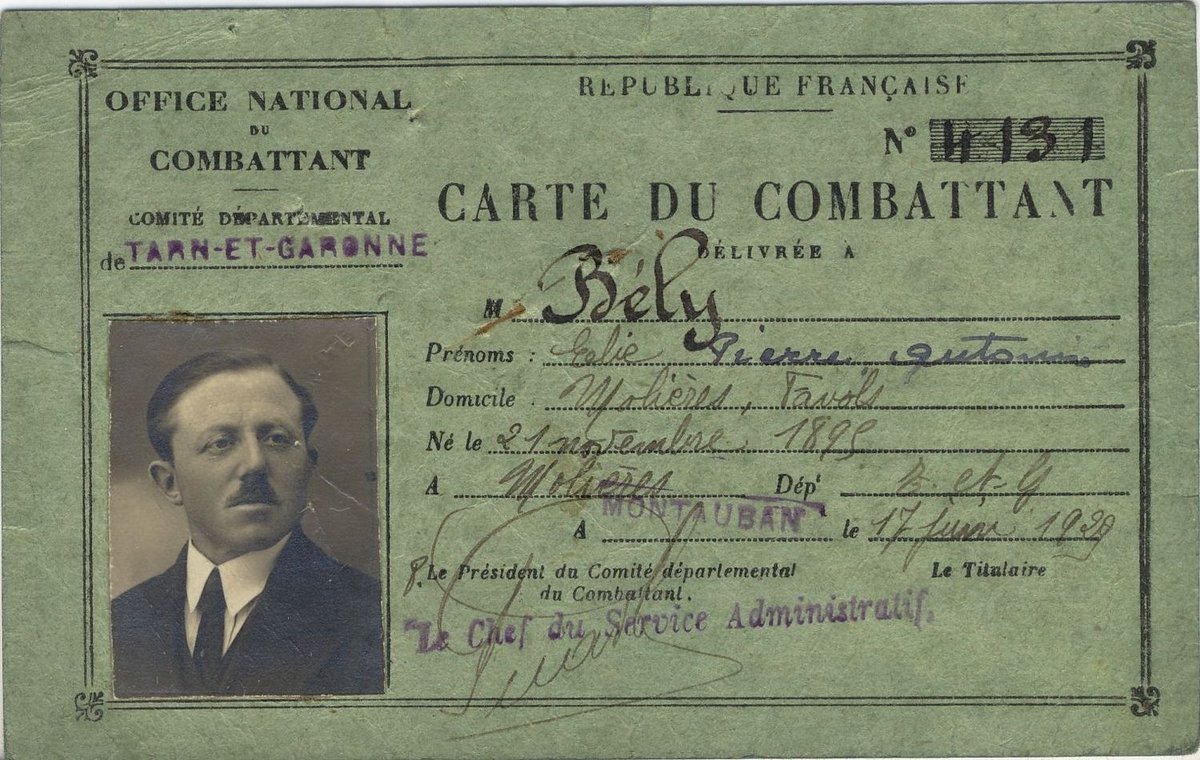 OFFICE NATIONAL
DU
COMBATTANT
COMITÉ DÉPARTEMENTAL
de TARN-ET-GARONNE
RÉPUBLIQUE FRANÇAISE
N° 4131
CARTE DU COMBATTANT
DÉLIVRÉE A
M Bély
Prénoms : Elie Pierre Antonin
Domicile : Molières, Favols
Né le 21 novembre 1895
A Molières Dépt T. et G
A MONTAUBAN le 17 juin 1930
P. Le Président du Comité départemental
du Combattant.
Le Titulaire
"Le Chef du Service Administratif.